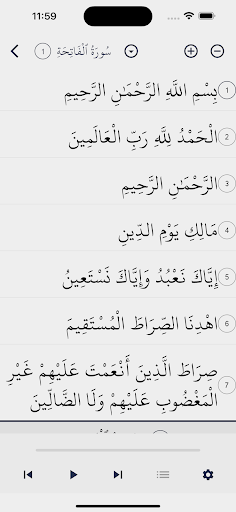 11:59
1 سُورَةُ ٱلْفَاتِحَةِ
بِسْمِ اللَّهِ الرَّحْمَٰنِ الرَّحِيمِ 1
الْحَمْدُ لِلَّهِ رَبِّ الْعَالَمِينَ 2
الرَّحْمَٰنِ الرَّحِيمِ 3
مَالِكِ يَوْمِ الدِّينِ 4
إِيَّاكَ نَعْبُدُ وَإِيَّاكَ نَسْتَعِينُ 5
اهْدِنَا الصِّرَاطَ الْمُسْتَقِيمَ 6
صِرَاطَ الَّذِينَ أَنْعَمْتَ عَلَيْهِمْ غَيْرِ
الْمَغْضُوبِ عَلَيْهِمْ وَلَا الضَّالِّينَ 7